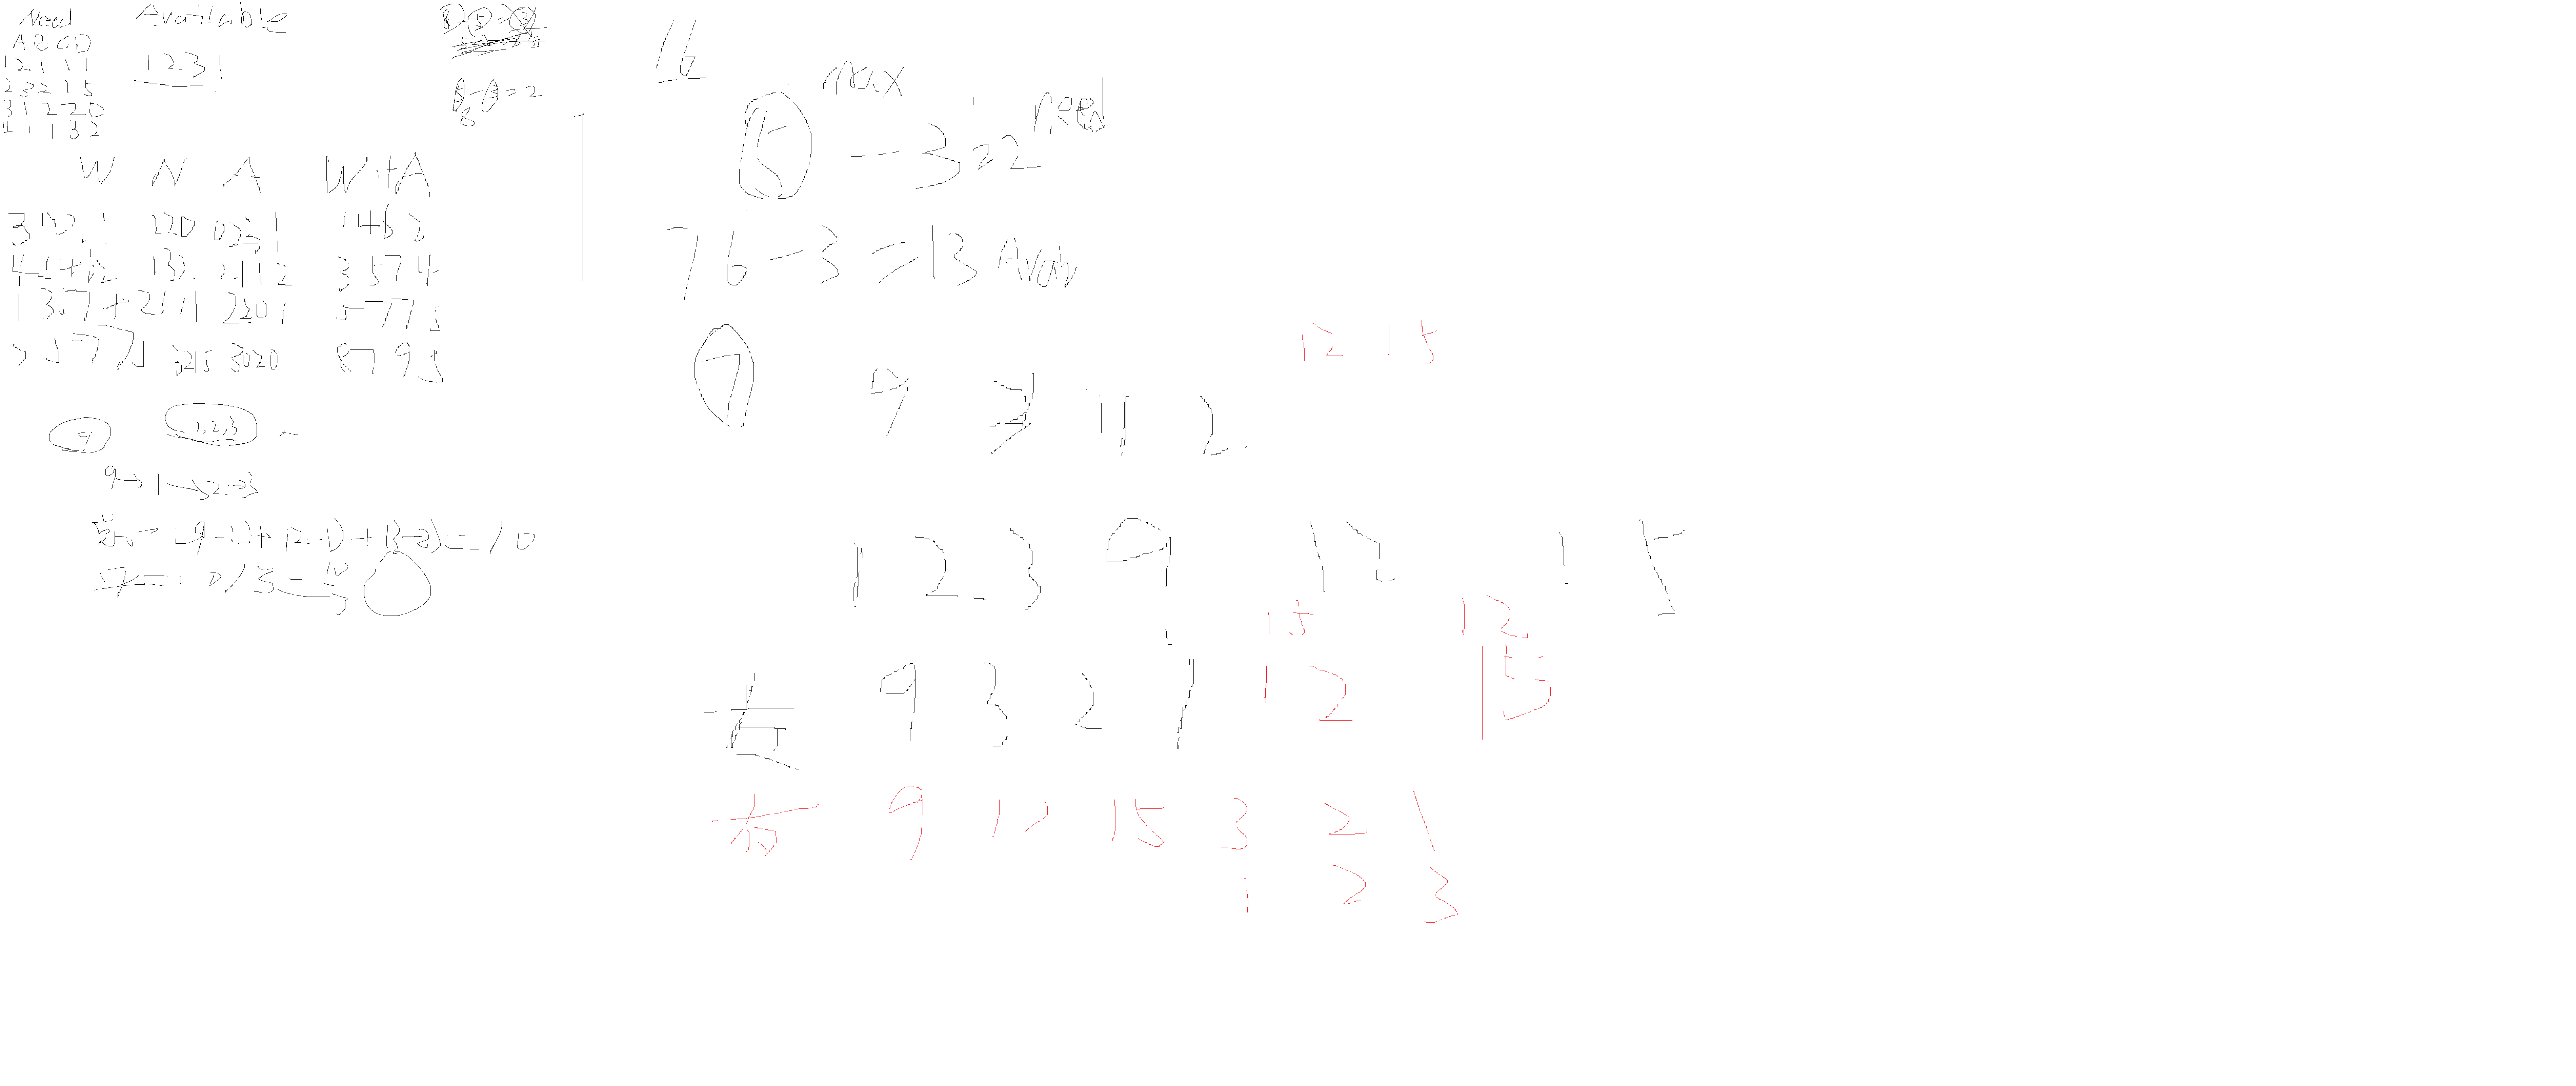 Need
A B C D
1 2 1 1 1
2 3 2 1 5
3 1 2 2 0
4 1 1 3 2
Available
1 2 3 1
8-5=3
8-3=2
W N A W+A
3 1231 1220 0231 1462
4 1462 1132 2112 3574
1 3574 2111 2201 5775
2 5775 3215 3020 8795
9 1,2,3
9→1→2→3
=(9-1)+(2-1)+(3-2)=10
=10/3=10/3
16
max
5-3=2 need
16-3=13 Avai
12 15
7 9 3 11 2
1 2 3 9 12 15
15 12
左 9 3 2 1 12 15
右 9 12 15 3 2 1
1 2 3